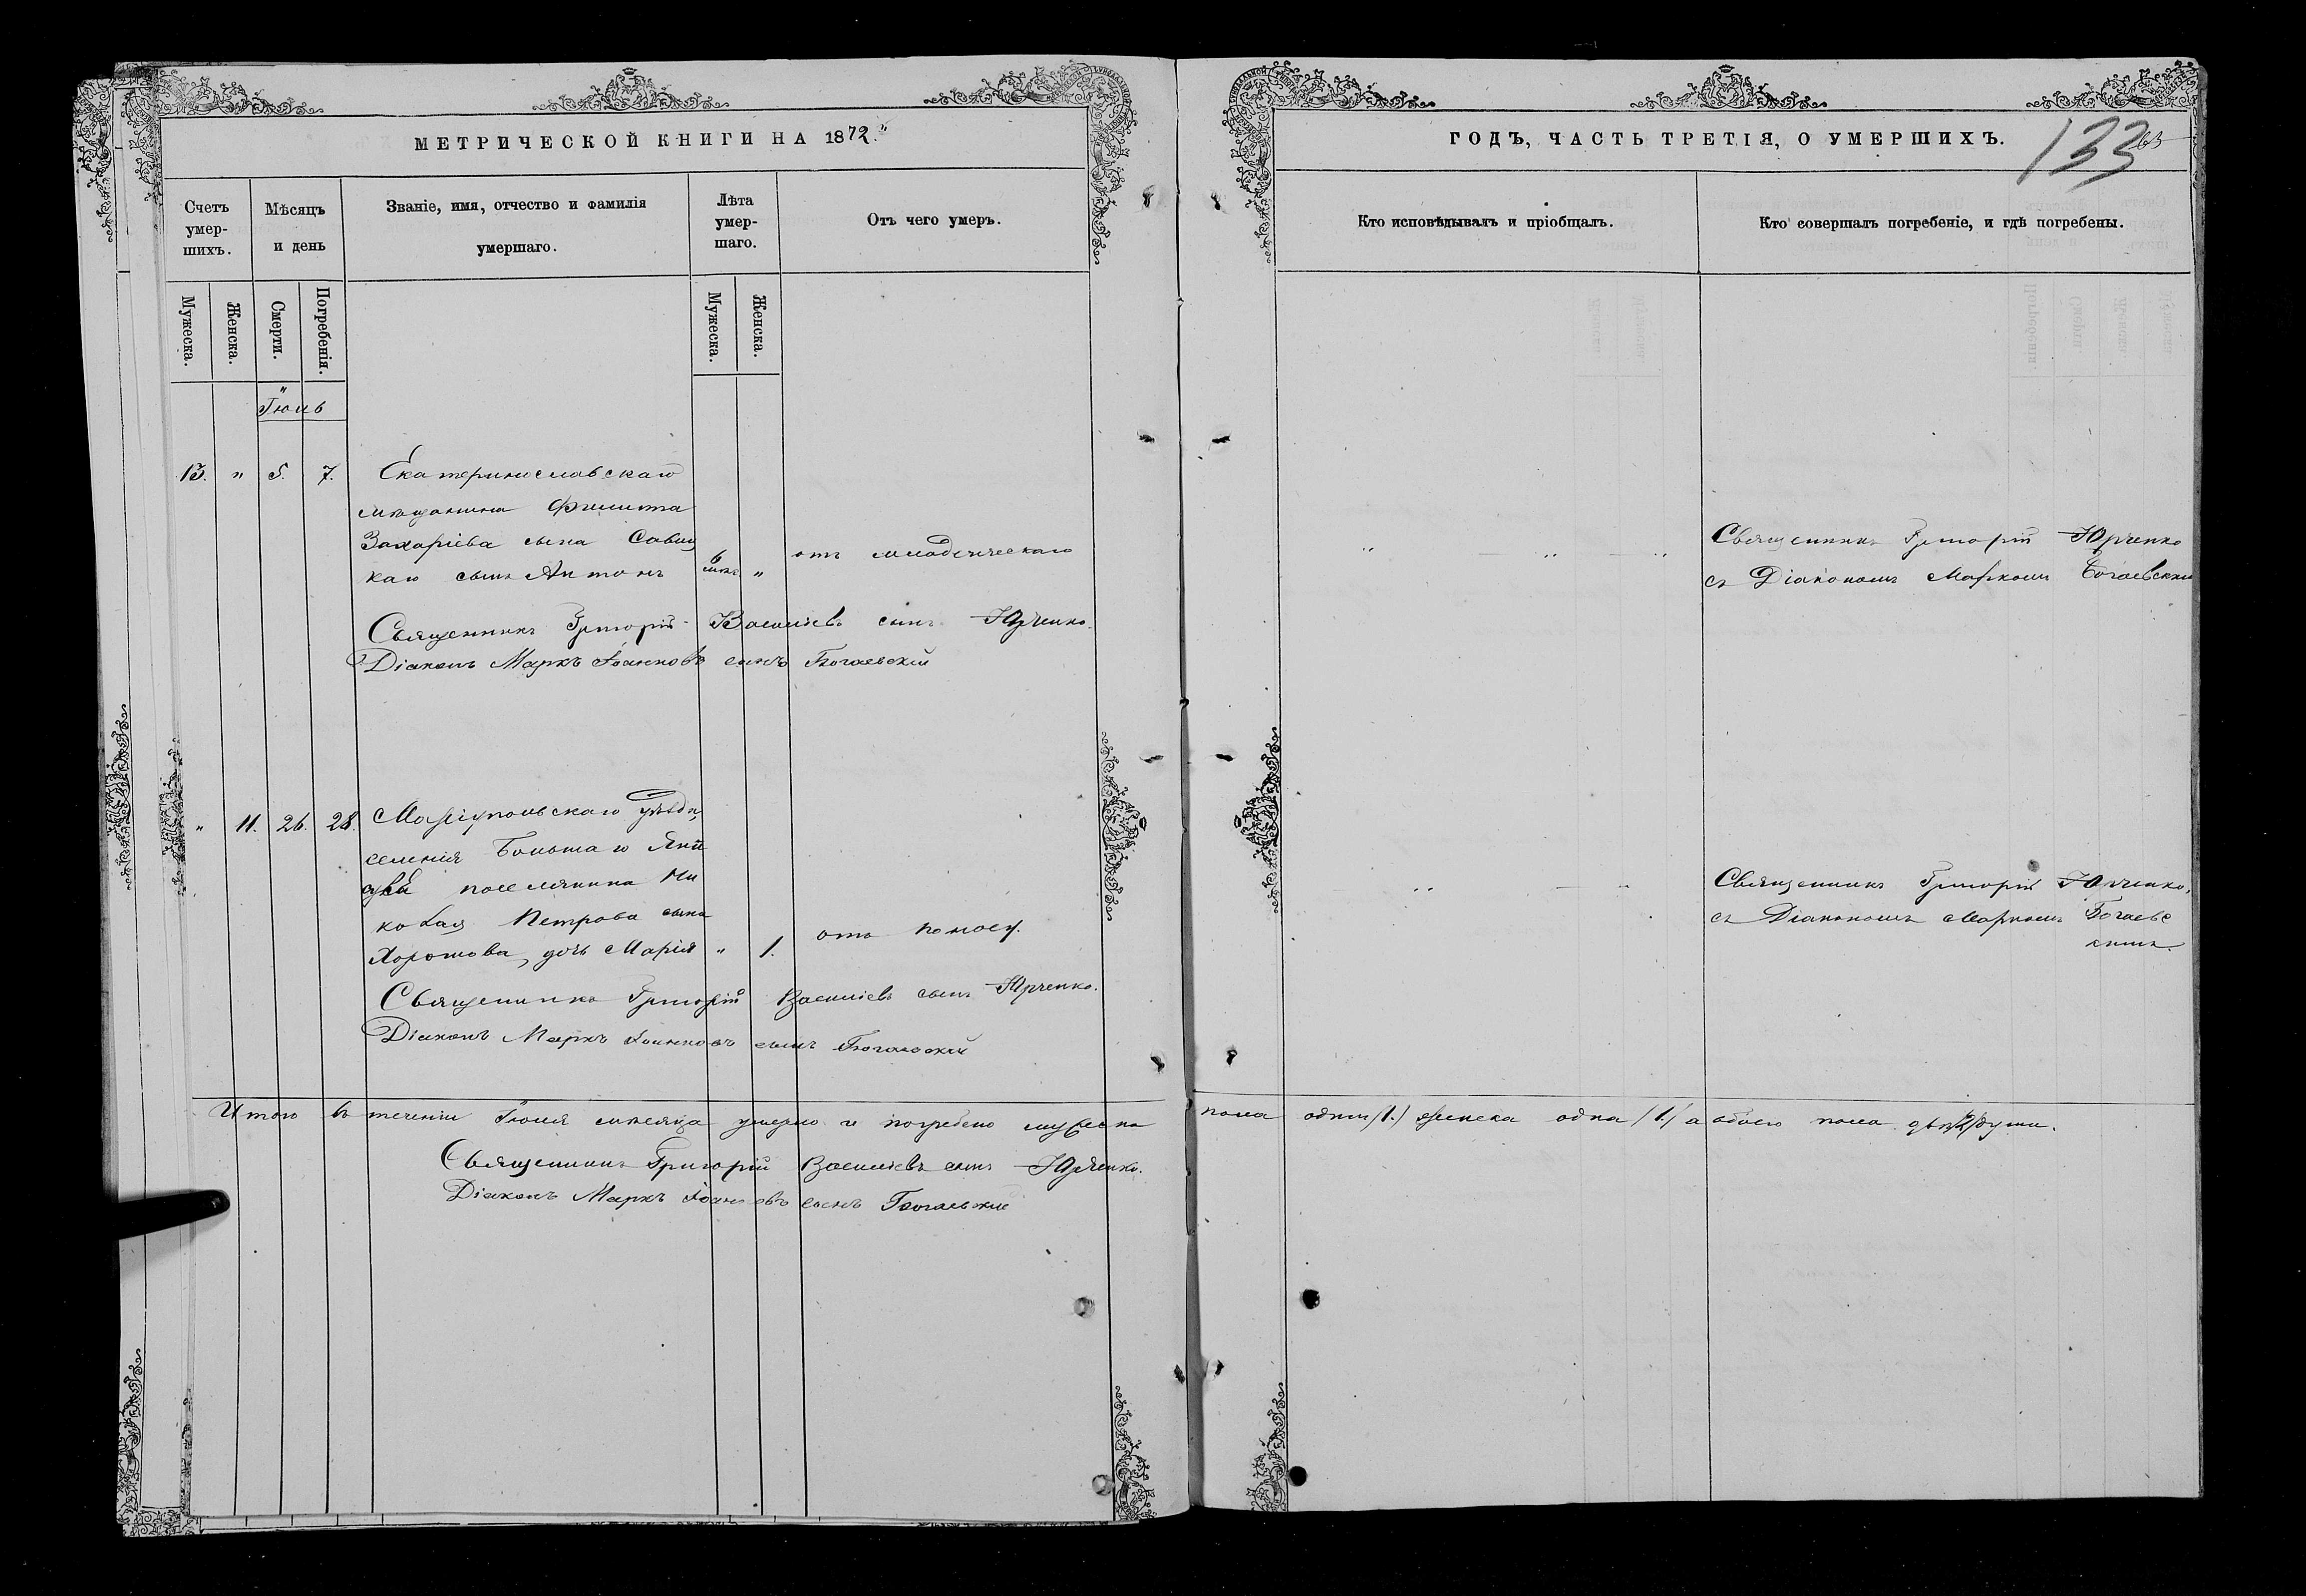 МЕТРИЧЕСКОЙ КНИГИ НА 1872.
Счетъ умер-шихъ.
Мѣсяцъ и день
Званіе, имя, отчество и фамилія умершаго.
Лѣта умер-шаго.
Отъ чего умеръ.
Мужеска.
Женска.
Смерти.
Погребенія.
Мужеска.
Женска.
13. " 5. 7. Екатеринославскаго
мѣщанина Филипа
Захаріева сына Савиц
каго сынъ Антонъ
6 " отъ младенческаго
Священникъ Григорій Василіевъ сынъ Юрченко.
Діаконъ Маркъ Іоанновъ сынъ Богаевскій
" 11. 26. 28. Маріупольскаго уѣзда,
селенія Большаго Яни
поселянина Ни
колая Петрова сына
дочь Марія " 1. отъ поносу.
Священникъ Григорій Василіевъ сынъ Юрченко.
Діаконъ Маркъ Іоанновъ сынъ Богаевскій
Итого въ теченіи мѣсяца умерло и погребено мужеска
Священникъ Григорій Василіевъ сынъ Юрченко.
Діаконъ Маркъ Іоанновъ сынъ Богаевскій
ГОДЪ, ЧАСТЬ ТРЕТІЯ, О УМЕРШИХЪ.
133
Кто исповѣдывалъ и пріобщалъ.
Кто совершалъ погребеніе, и гдѣ погребены.
Священникъ Григорій Юрченко
съ Діакономъ Маркомъ Богаевскимъ
Священникъ Григорій Юрченко,
съ Діакономъ Маркомъ Богаевс
кимъ.
пола одинъ /1./ женска одна /1./ а обоего пола двѣ /2/ души.